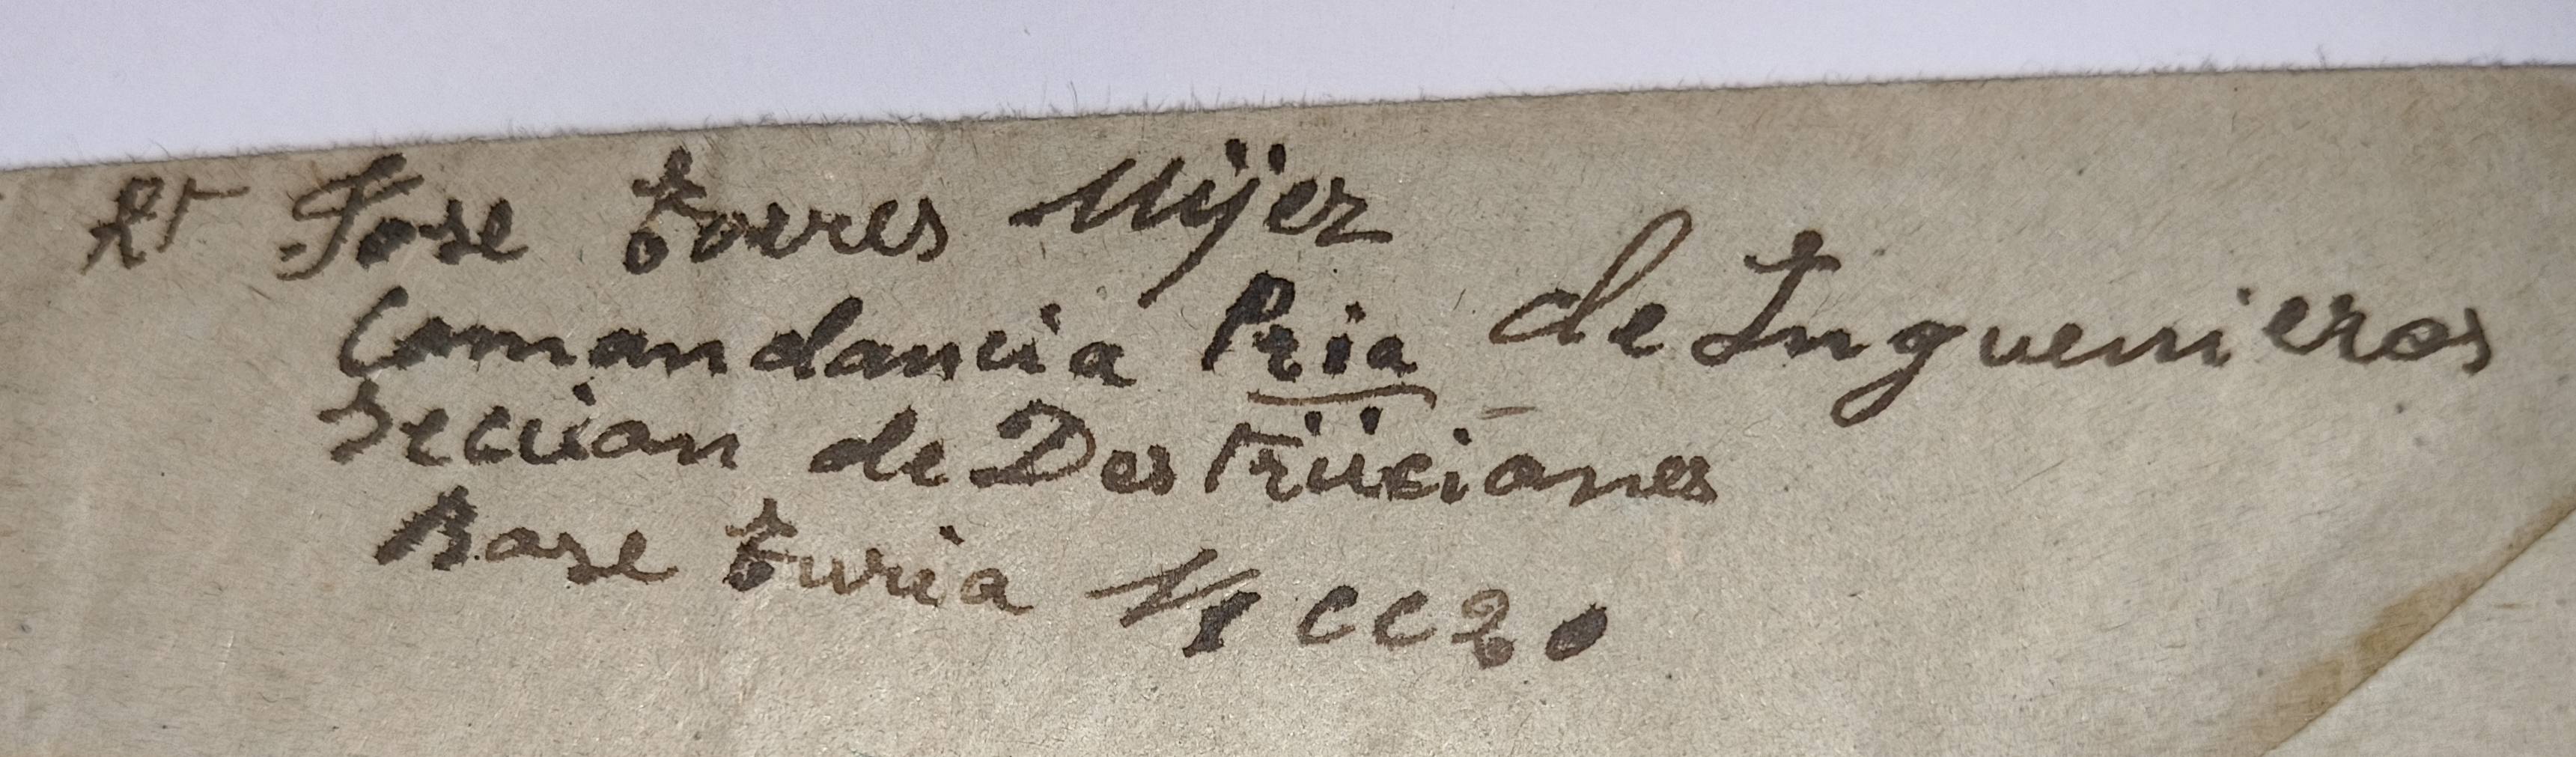 Rt Jose torres Mijez
Comandancia Pria de Inguenieros
Seccion de Destrüciones
Base turia
CC 20